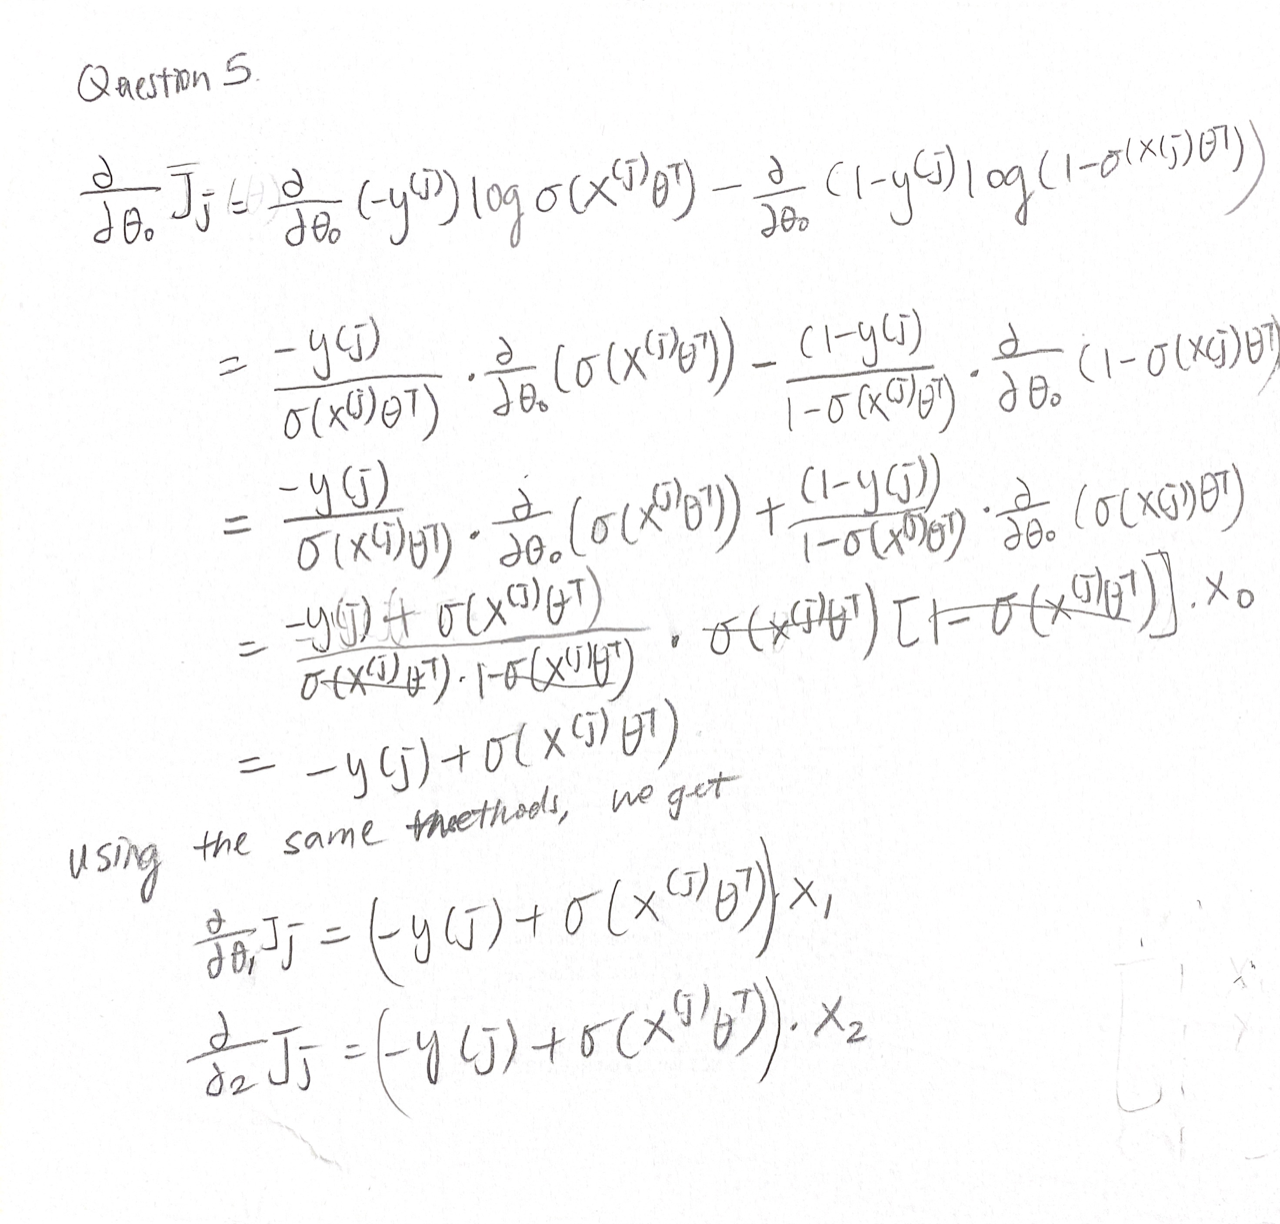 Question 5.
∂/∂θ₀ J_j = ∂/∂θ₀ (-y^(j)) log σ(x^(j)θ^T) - ∂/∂θ₀ (1-y^(j)) log(1-σ(x(j)θ^T))
= -y(j)/σ(x^(j)θ^T) · ∂/∂θ₀ (σ(x^(j)θ^T)) - (1-y(j)/1-σ(x^(j)θ^T) · ∂/∂θ₀ (1-σ(x(j)θ^T)
= -y(j)/σ(x(j)θ^T) · ∂/∂θ₀ (σ(x^(j)θ^T)) + (1-y(j))/1-σ(x^(j)θ^T) · ∂/∂θ₀ (σ(x(j))θ^T)
= -y(j) + σ(x^(j)θ^T)/σ(x^(j)θ^T) · 1-σ(x^(j)θ^T) · σ(x^(j)θ^T) [1-σ(x^(j)θ^T)] · x₀
= -y(j) + σ(x^(j)θ^T)
using the same methods, we get
∂/∂θ₁ J_j = (-y(j) + σ(x^(j)θ^T)) x₁
∂/∂₂ J_j = (-y(j) + σ(x^(j)θ^T)) · x₂